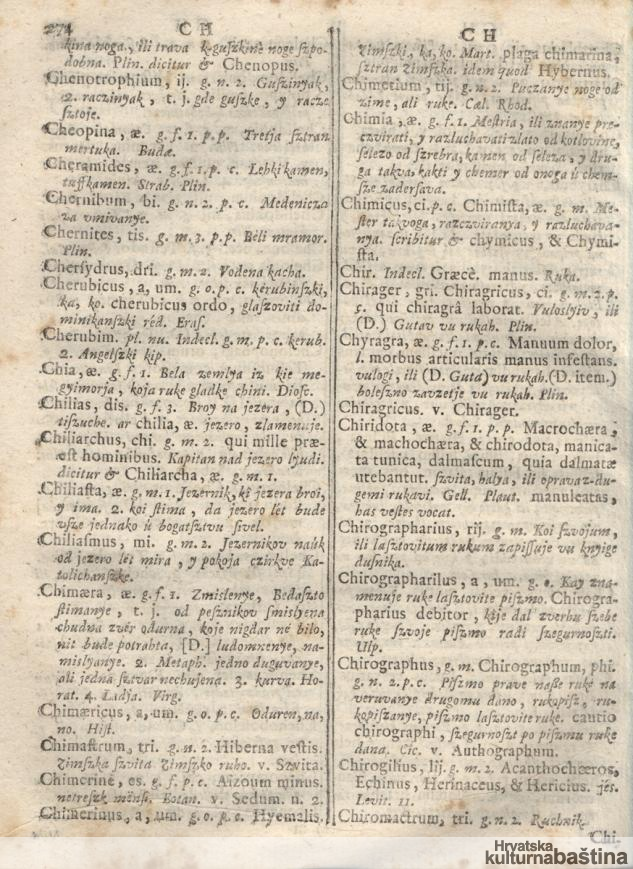 274 CH
kina noga, ili trava k guszkinè noge szpo-
dobna. Plin. dicitur & Chenopus.
Chenotrophium, ij. g. n. 2. Guszinyak,
2. raczinyak, t. j. gde guszke, y racze
sztoje.
Cheopina, æ. g. f. 1. p. p. Tretja sztran
mertuka. Budæ.
Cheramides, æ. g. f. 1. p. c. Lehki kamen,
tuffkamen. Strab. Plin.
Chernibum, bi. g. n. 2. p. c. Medenicza
za vmivanye.
Chernites, tis. g. m. 3. p. p. Bèli mramor.
Plin.
Chersydrus, dri. g. m. 2. Vodena kacha.
Cherubicus, a, um. g. o. p. c. kèrubinszki,
ka, ko. cherubicus ordo, glaszoviti do-
minikanszki réd. Eras.
Cherubim. pl. nu. Indecl. g. m. p. c. kerub.
2. Angelszki kip.
Chia, æ. g. f. 1. Bela zemlya iz kie me-
gyimorja, koja ruke gladke chini. Diosc.
Chilias, dis. g. f. 3. Broy na jezera, (D.)
tiszuche. ar chilia, æ. jezero, zlamenuje.
Chiliarchus, chi. g. m. 2. qui mille præ-
est hominibus. Kapitan nad jezero lyudi.
dicitur & Chiliarcha, æ. g. m. 1.
Chiliasta, æ. g. m. 1. Jezernik, kì jezera broi,
y ima. 2. koi stima, da jezero lét bude
vsze jednako ù bogatsztvu sivel.
Chiliasmus, mi. g. m. 2. Jezernikov naúk
od jezero lét mira, y pokoja czirkve Ka-
tolichanszke.
Chimæra, æ. g. f. 1. Zmislenye, Bedaszto
stimanye, t. j. od pesznikov smislyena
chudna zvér odurna, koje nigdar né bilo,
nit bude potrahta, [D.] ludomnenye, na-
mislyanye. 2. Metaph. jedno duguvanye,
ali jedna sztvar nechujena. 3. kurva. Ho-
rat. 4. Ladja. Virg.
Chimæricus, a, um. g. o. p. c. Oduren, na,
no. Hist.
Chimastrum, tri. g. n. 2. Hiberna vestis.
Zimszka szvita Zimszko ruho. v. Szvita.
Chimerinè, es. g. f. p. c. Aizoum minus.
netreszk mènsi. Botan. v. Sedum. n. 2.
Chimerinus, a, um. g. o. p. c. Hyemalis.
CH
Zimszki, ka, ko. Mart. plaga chimarina,
sztran Zimszka. idem quod Hybernus.
Chimetium, tij. g. n. 2. Puczanye noge od
zime, ali ruke. Cal. Rhod.
Chimia, æ. g. f. 1. Mestria, ili znanye pre-
czvirati, y razluchavati zlato od kotlovine,
selezo od szrebra, kamen od seleza, y dru-
ga takva, kakti y chemer od onoga ù chem-
sze zadersava.
Chimicus, ci. p. c. Chimista, æ. g. m. Me-
ster takvoga, razczviranya, y razluchava-
nya. scribitur & chymicus, & Chymi-
sta.
Chir. Indecl. Græcè. manus. Ruka.
Chirager, gri. Chiragricus, ci. g. m. 2. p.
c. qui chiragrâ laborat. Vuloslyiv, ili
(D.) Gutav vu rukah. Plin.
Chyragra, æ. g. f. 1. p. c. Manuum dolor,
l. morbus articularis manus infestans.
vulogi, ili (D. Guta) vu rukah. (D. item.)
boleszno zavzetje vu rukah. Plin.
Chiragricus. v. Chirager.
Chiridota, æ. g. f. 1. p. p. Macrochæra,
& machochæra, & chirodota, manica-
ta tunica, dalmascum, quia dalmatæ
utebantur. szvita, halya, ili oprava z du-
gemi rukavi. Gell. Plaut. manuleatas,
has vestes vocat.
Chirographarius, rij. g. m. Koi szvojum,
ili lasztovitum rukum zapissuje vu knyige
dusnika.
Chirographarilus, a, um. g. o. Kay zna-
menuje ruke lasztovite piszmo. Chirogra-
pharius debitor, kije dal zverhu szebe
ruke szvoje piszmo radi szegurnoszti.
Ulp.
Chirographus, g. m. Chirographum, phi.
g. n. 2. p. c. Piszmo prave nasse ruke na
veruvanye drugomu dano, rukopisz, ru-
kopiszanye, piszmo lasztovite ruke. cautio
chirographi, szegurnoszt po piszmu ruke
dana. Cic. v. Authographum.
Chirogilius, lij. g. m. 2. Acanthochæros,
Echinus, Herinaceus, & Hericius. jés.
Levit. 11.
Chiromactrum, tri. g. n. 2. Ruchnik.
Chi-
Hrvatska
kulturnabaština